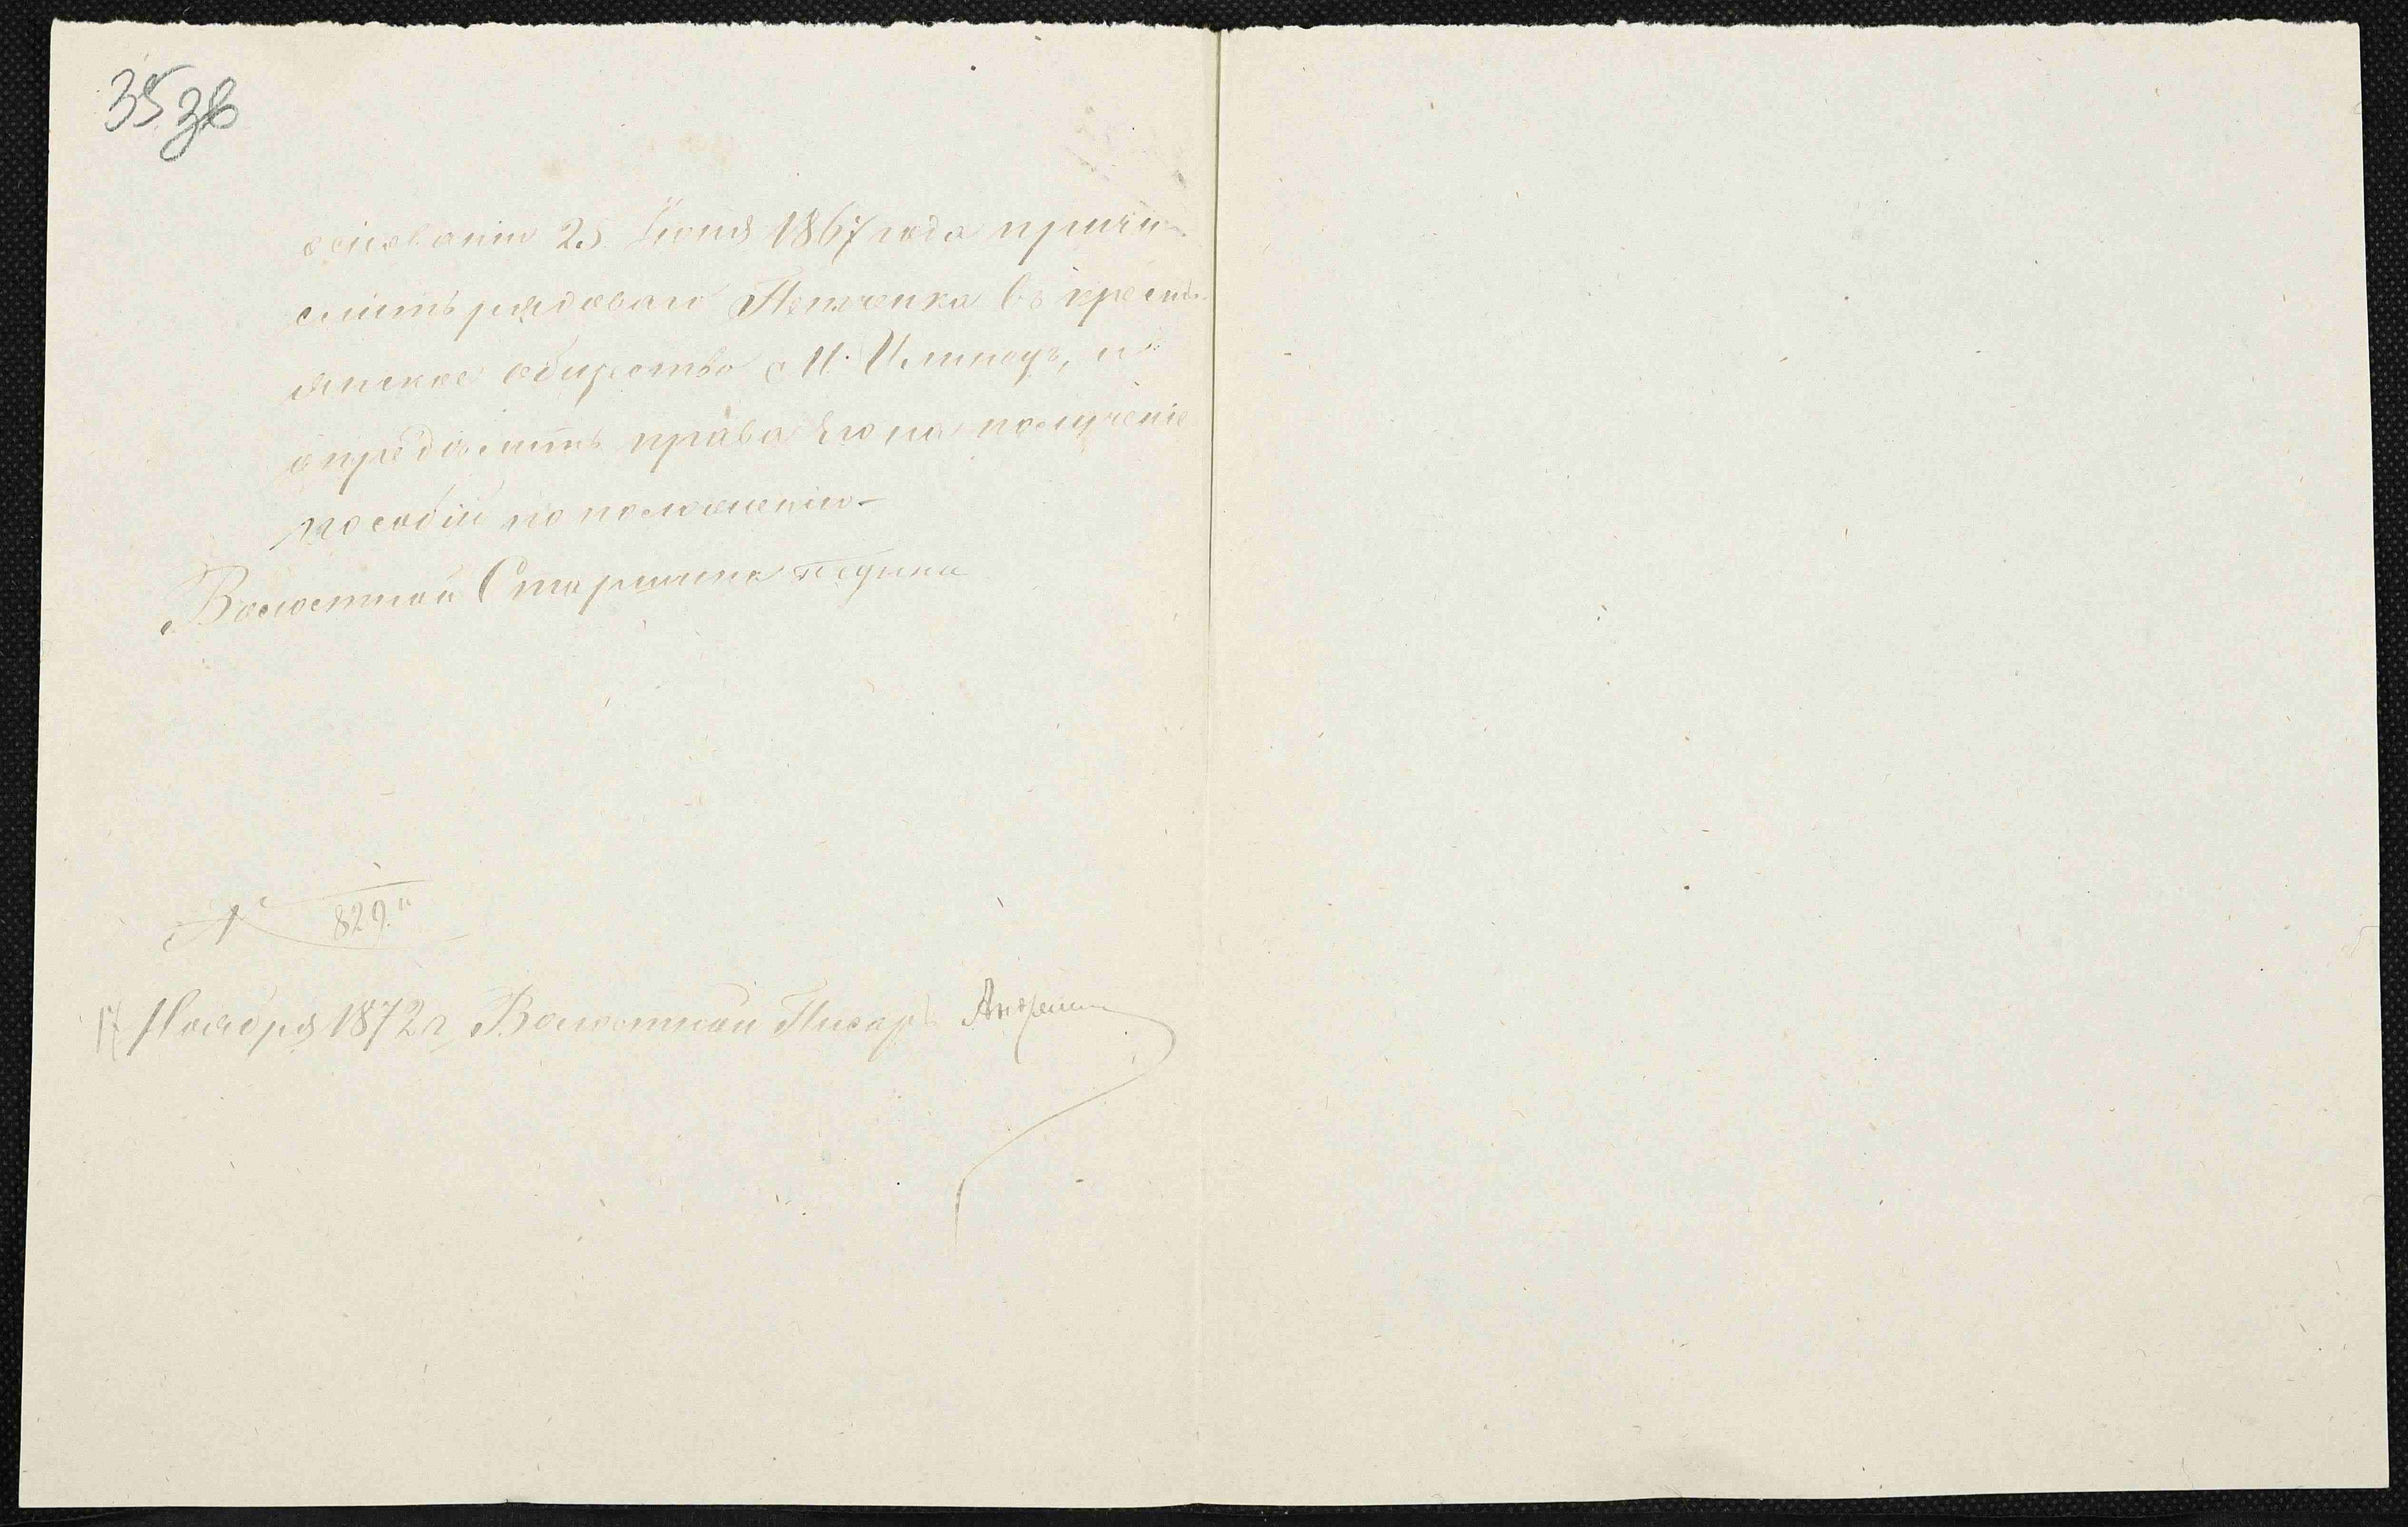 35 зв
основаніи 25 Іюня 1867 года причи-
слить рядоваго Петченка въ кресть-
янское общество с И. и
опредѣлить права Его на полученіе
пособій по положенію-
Волостной Старшина
№ 829.
17 Ноября 1872 г Волостной Писарь